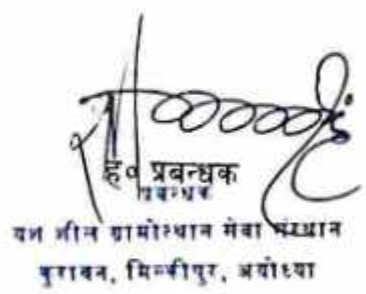 ह० प्रबन्धक
प्रबन्धक
यश शील ग्रामोत्थान सेवा संस्थान
कुरावन, मिल्कीपुर, अयोध्या